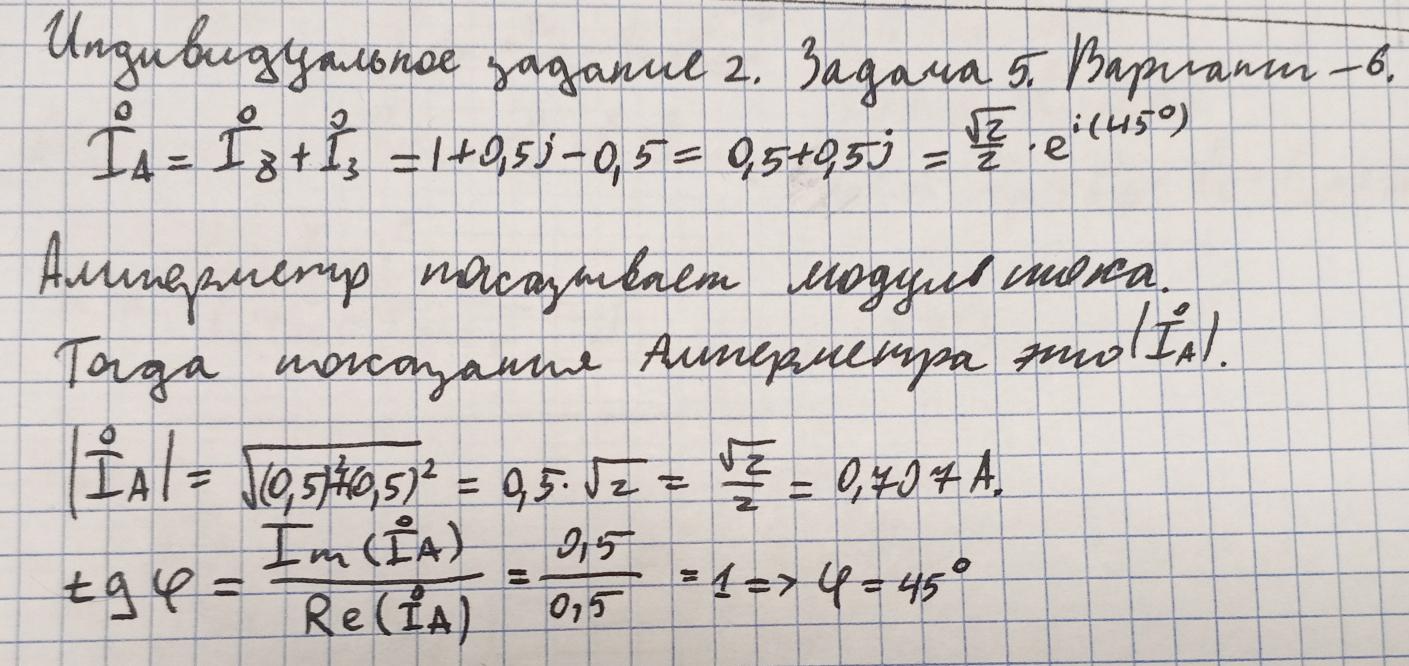 Индивидуальное задание 2. Задача 5. Вариант – 6.
İ_A = İ_8 + İ_3 = 1+0,5j – 0,5 = 0,5+0,5j = √2/2 · e^{i(45°)}
Амперметр показывает модуль тока.
Тогда показания Амперметра это |İ_A|.
|İ_A| = √((0,5)²+(0,5)²) = 0,5·√2 = √2/2 = 0,707 A.
tg φ = Im(İ_A)/Re(İ_A) = 0,5/0,5 = 1 => φ = 45°